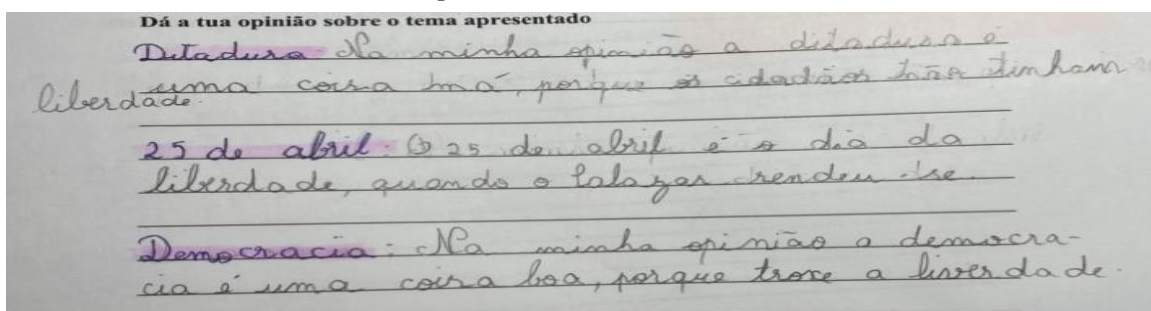 Dá a tua opinião sobre o tema apresentado
Ditadura: Na minha opinião a ditadura é
uma coisa má, porque os cidadãos não tinham
liberdade.
25 de abril: O 25 de abril é o dia da
liberdade, quando o Salazar rendeu-se.
Democracia: Na minha opinião a democra-
cia é uma coisa boa, porque troxe a liverdade.